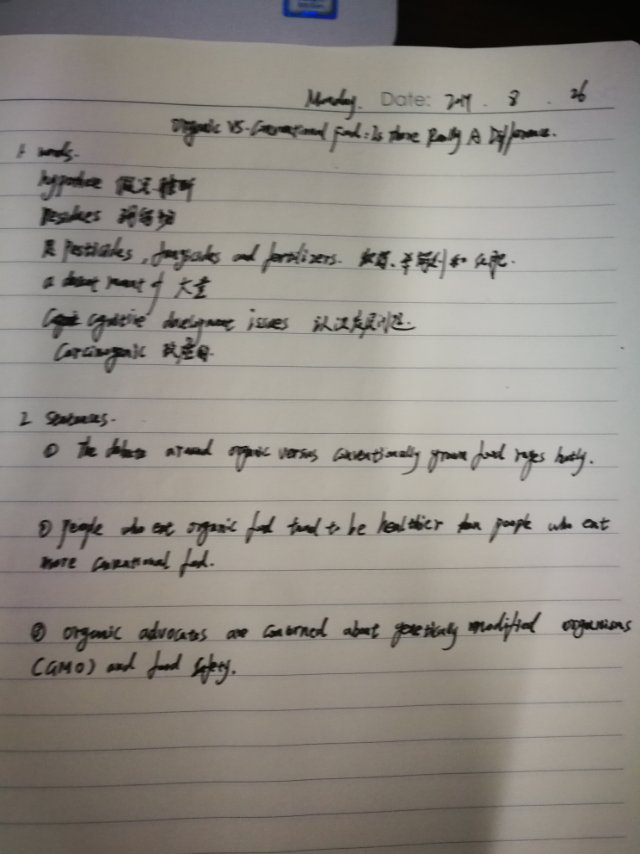 Monday. Date: 2019 . 8 . 26
Organic VS. Conventional Food: Is There Really A Difference.
1 words.
hypothese 假设
residues 残留物
Pesticides, fungicides and fertilizers. 杀菌剂和化肥.
a decent amount of 大量
cognitive development issues 认识发展问题.
Carcinogenic 致癌的
2 Sentences.
① The debate around organic versus conventionally grown food rages hotly.
② people who eat organic food tend to be healthier than people who eat
more conventional food.
③ organic advocates are concerned about genetically modified organisms
(GMO) and food safety.